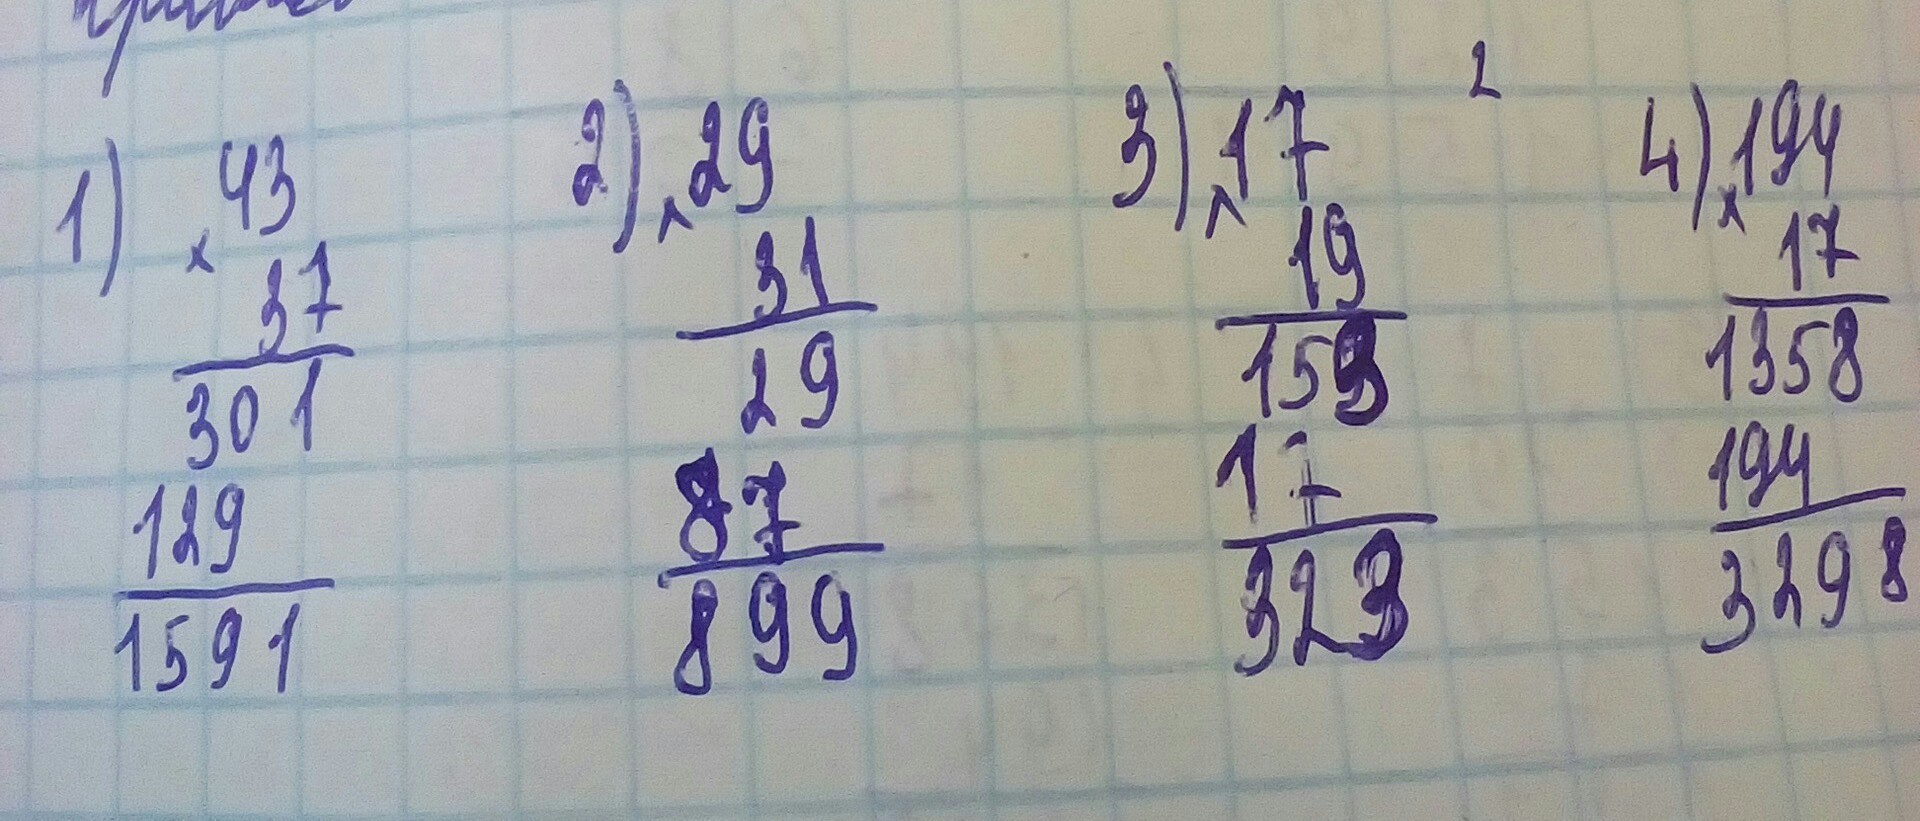 1) 43
× 37
301
129
1591
2) × 29
31
29
87
899
3) × 17
19
153
17
323
2
4) × 194
17
1358
194
3298